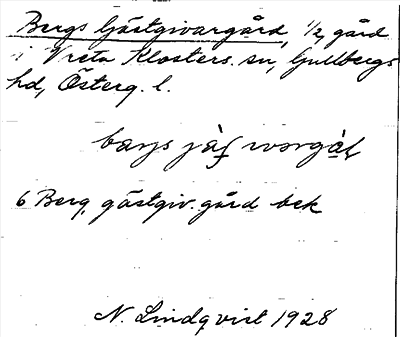 Bergs Gästgivargård, 1/2 gård
i Vreta Klosters sn, Gullbergs
hd, Österg. l.
6 Berg, gästgiv.gård bek
N. Lindqvist 1928